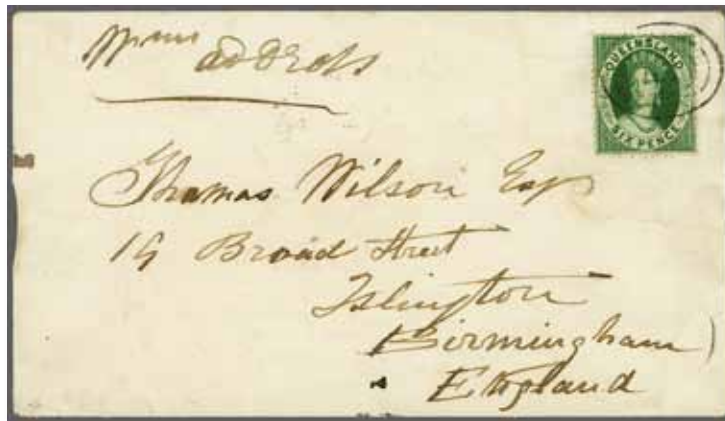 address
QUEENSLAND
SIX PENCE
Thomas Wilson Esq
19 Broad Street
Islington
Birmingham
England